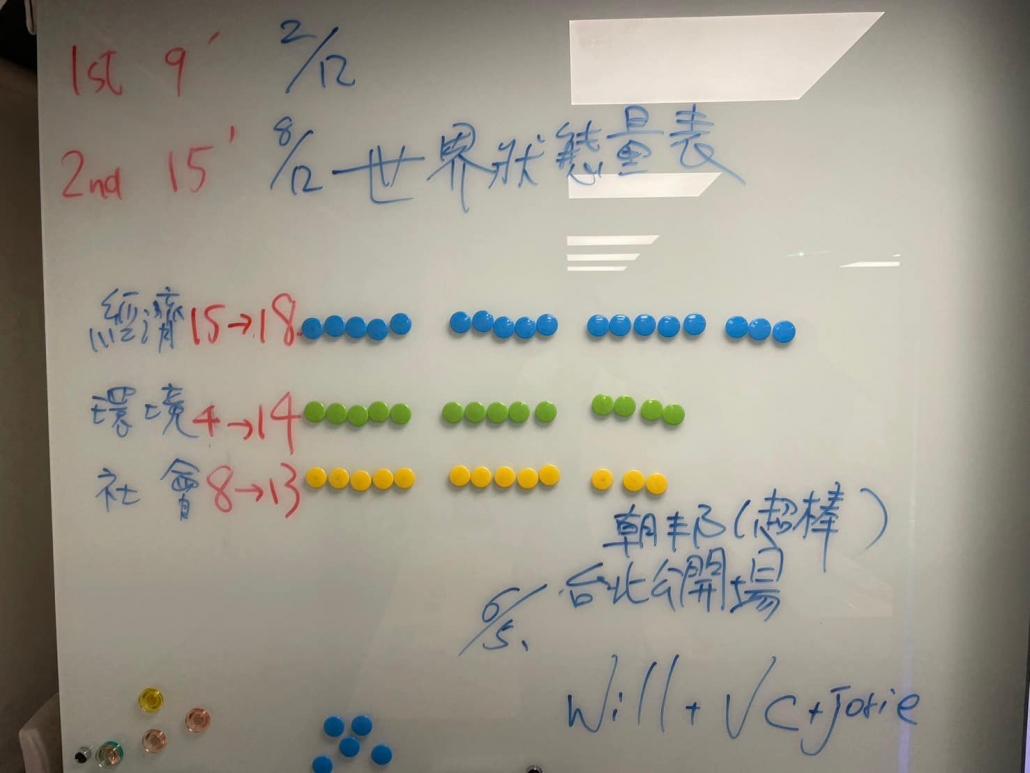 1st 9' 2/12
2nd 15' 8/12 世界狀態量表
經濟 15→18
環境 4→14
社會 8→13
朝丰(超棒)
6/5. 台北公開場
Will + VC + Josie